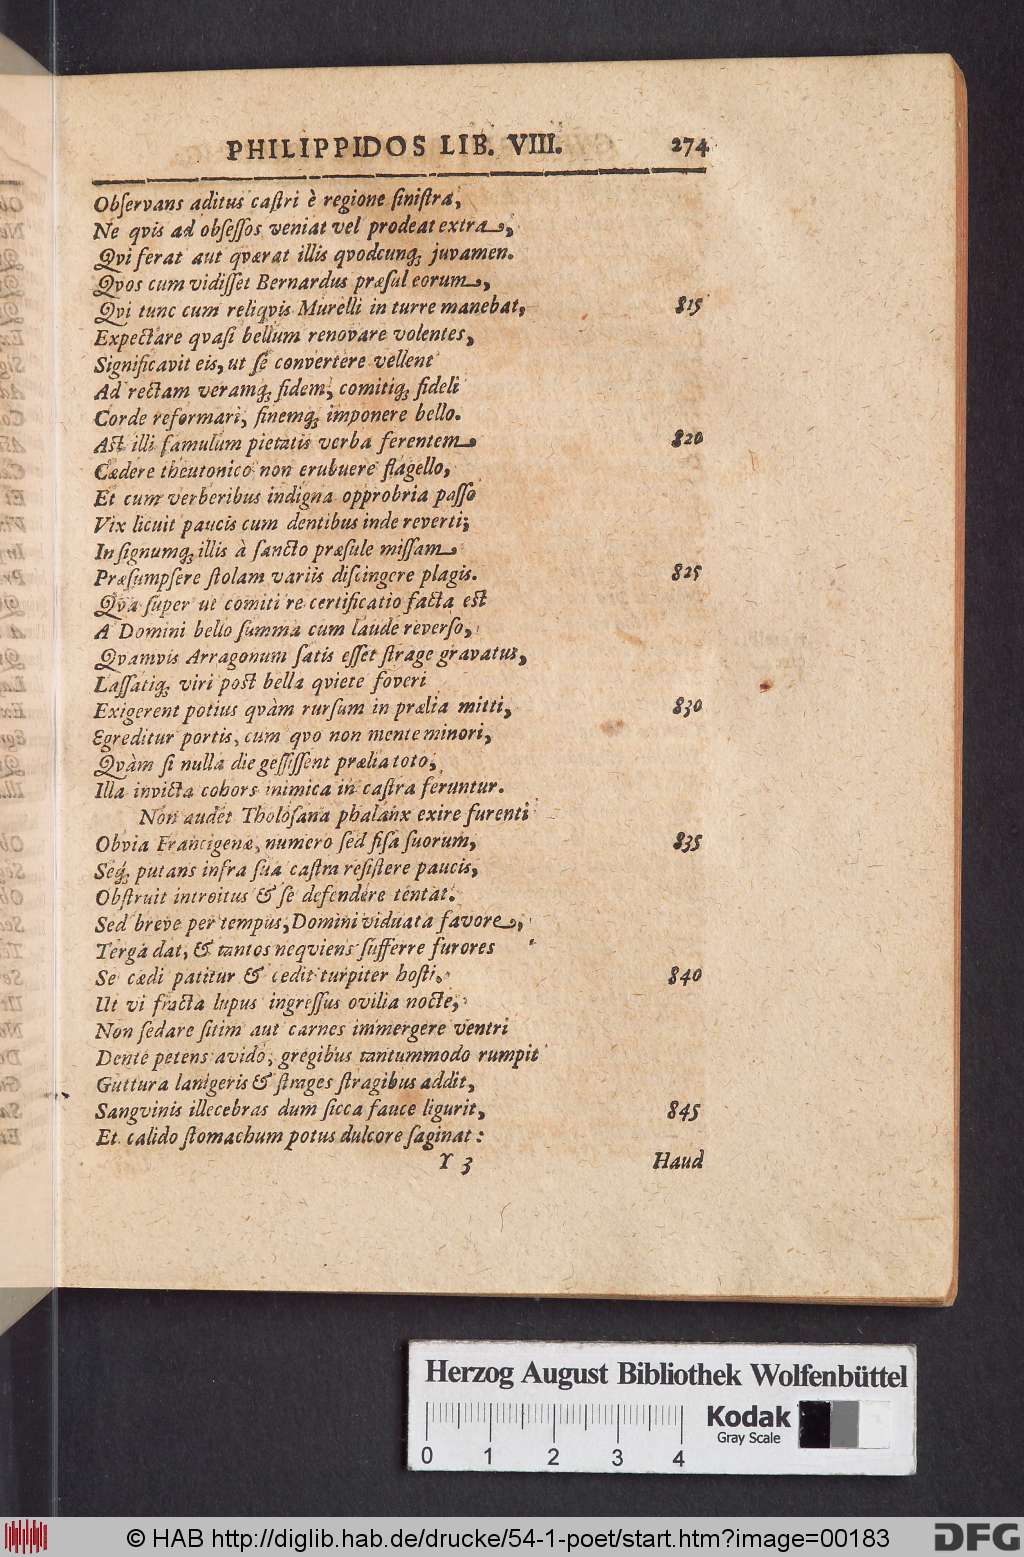 PHILIPPIDOS LIB. VIII. 274
Obſervans aditus caſtri è regione ſiniſtra,
Ne qvis ad obſeſſos veniat vel prodeat extra,
Qvi ferat aut qværat illis qvodcunq; juvamen.
Qvos cum vidiſſet Bernardus præſul eorum,
Qvi tunc cum reliqvis Murelli in turre manebat, 815
Expectare qvaſi bellum renovare volentes,
Significavit eis, ut ſe convertere vellent
Ad rectam veramq; fidem, comitiq; fideli
Corde reformari, finemq; imponere bello.
Aſt illi famulum pietatis verba ferentem 820
Cædere theutonico non erubuere flagello,
Et cum verberibus indigna opprobria paſſo
Vix licuit paucis cum dentibus inde reverti;
Inſignumq; illis à ſancto præſule miſſam
Præſumpſere ſtolam variis diſcingere plagis. 825
Qva ſuper ut comiti re certificatio facta eſt
A Domini bello ſumma cum laude reverſo,
Qvamvis Arragonum ſatis eſſet ſtrage gravatus,
Laſſatiq; viri poſt bella qviete foveri
Exigerent potius qvàm rurſum in prælia mitti, 830
Egreditur portis, cum qvo non mente minori,
Qvàm ſi nulla die geſſiſſent prælia toto,
Illa invicta cohors inimica in caſtra feruntur.
Non audet Tholoſana phalanx exire furenti
Obvia Francigenæ, numero ſed fiſa ſuorum, 835
Seq; putans infra ſua caſtra reſiſtere paucis,
Obſtruit introitus & ſe defendere tentat.
Sed breve per tempus, Domini viduata favore,
Terga dat, & tantos neqviens ſufferre furores
Se cædi patitur & cedit turpiter hoſti. 840
Ut vi fracta lupus ingreſſus ovilia nocte,
Non ſedare ſitim aut carnes immergere ventri
Dente petens avido, gregibus tantummodo rumpit
Guttura lanigeris & ſtrages ſtragibus addit,
Sangvinis illecebras dum ſicca fauce ligurit, 845
Et calido ſtomachum potus dulcore ſaginat:
Y 3 Haud
Herzog August Bibliothek Wolfenbüttel
0 1 2 3 4
Kodak
Gray Scale
© HAB http://diglib.hab.de/drucke/54-1-poet/start.htm?image=00183
DFG